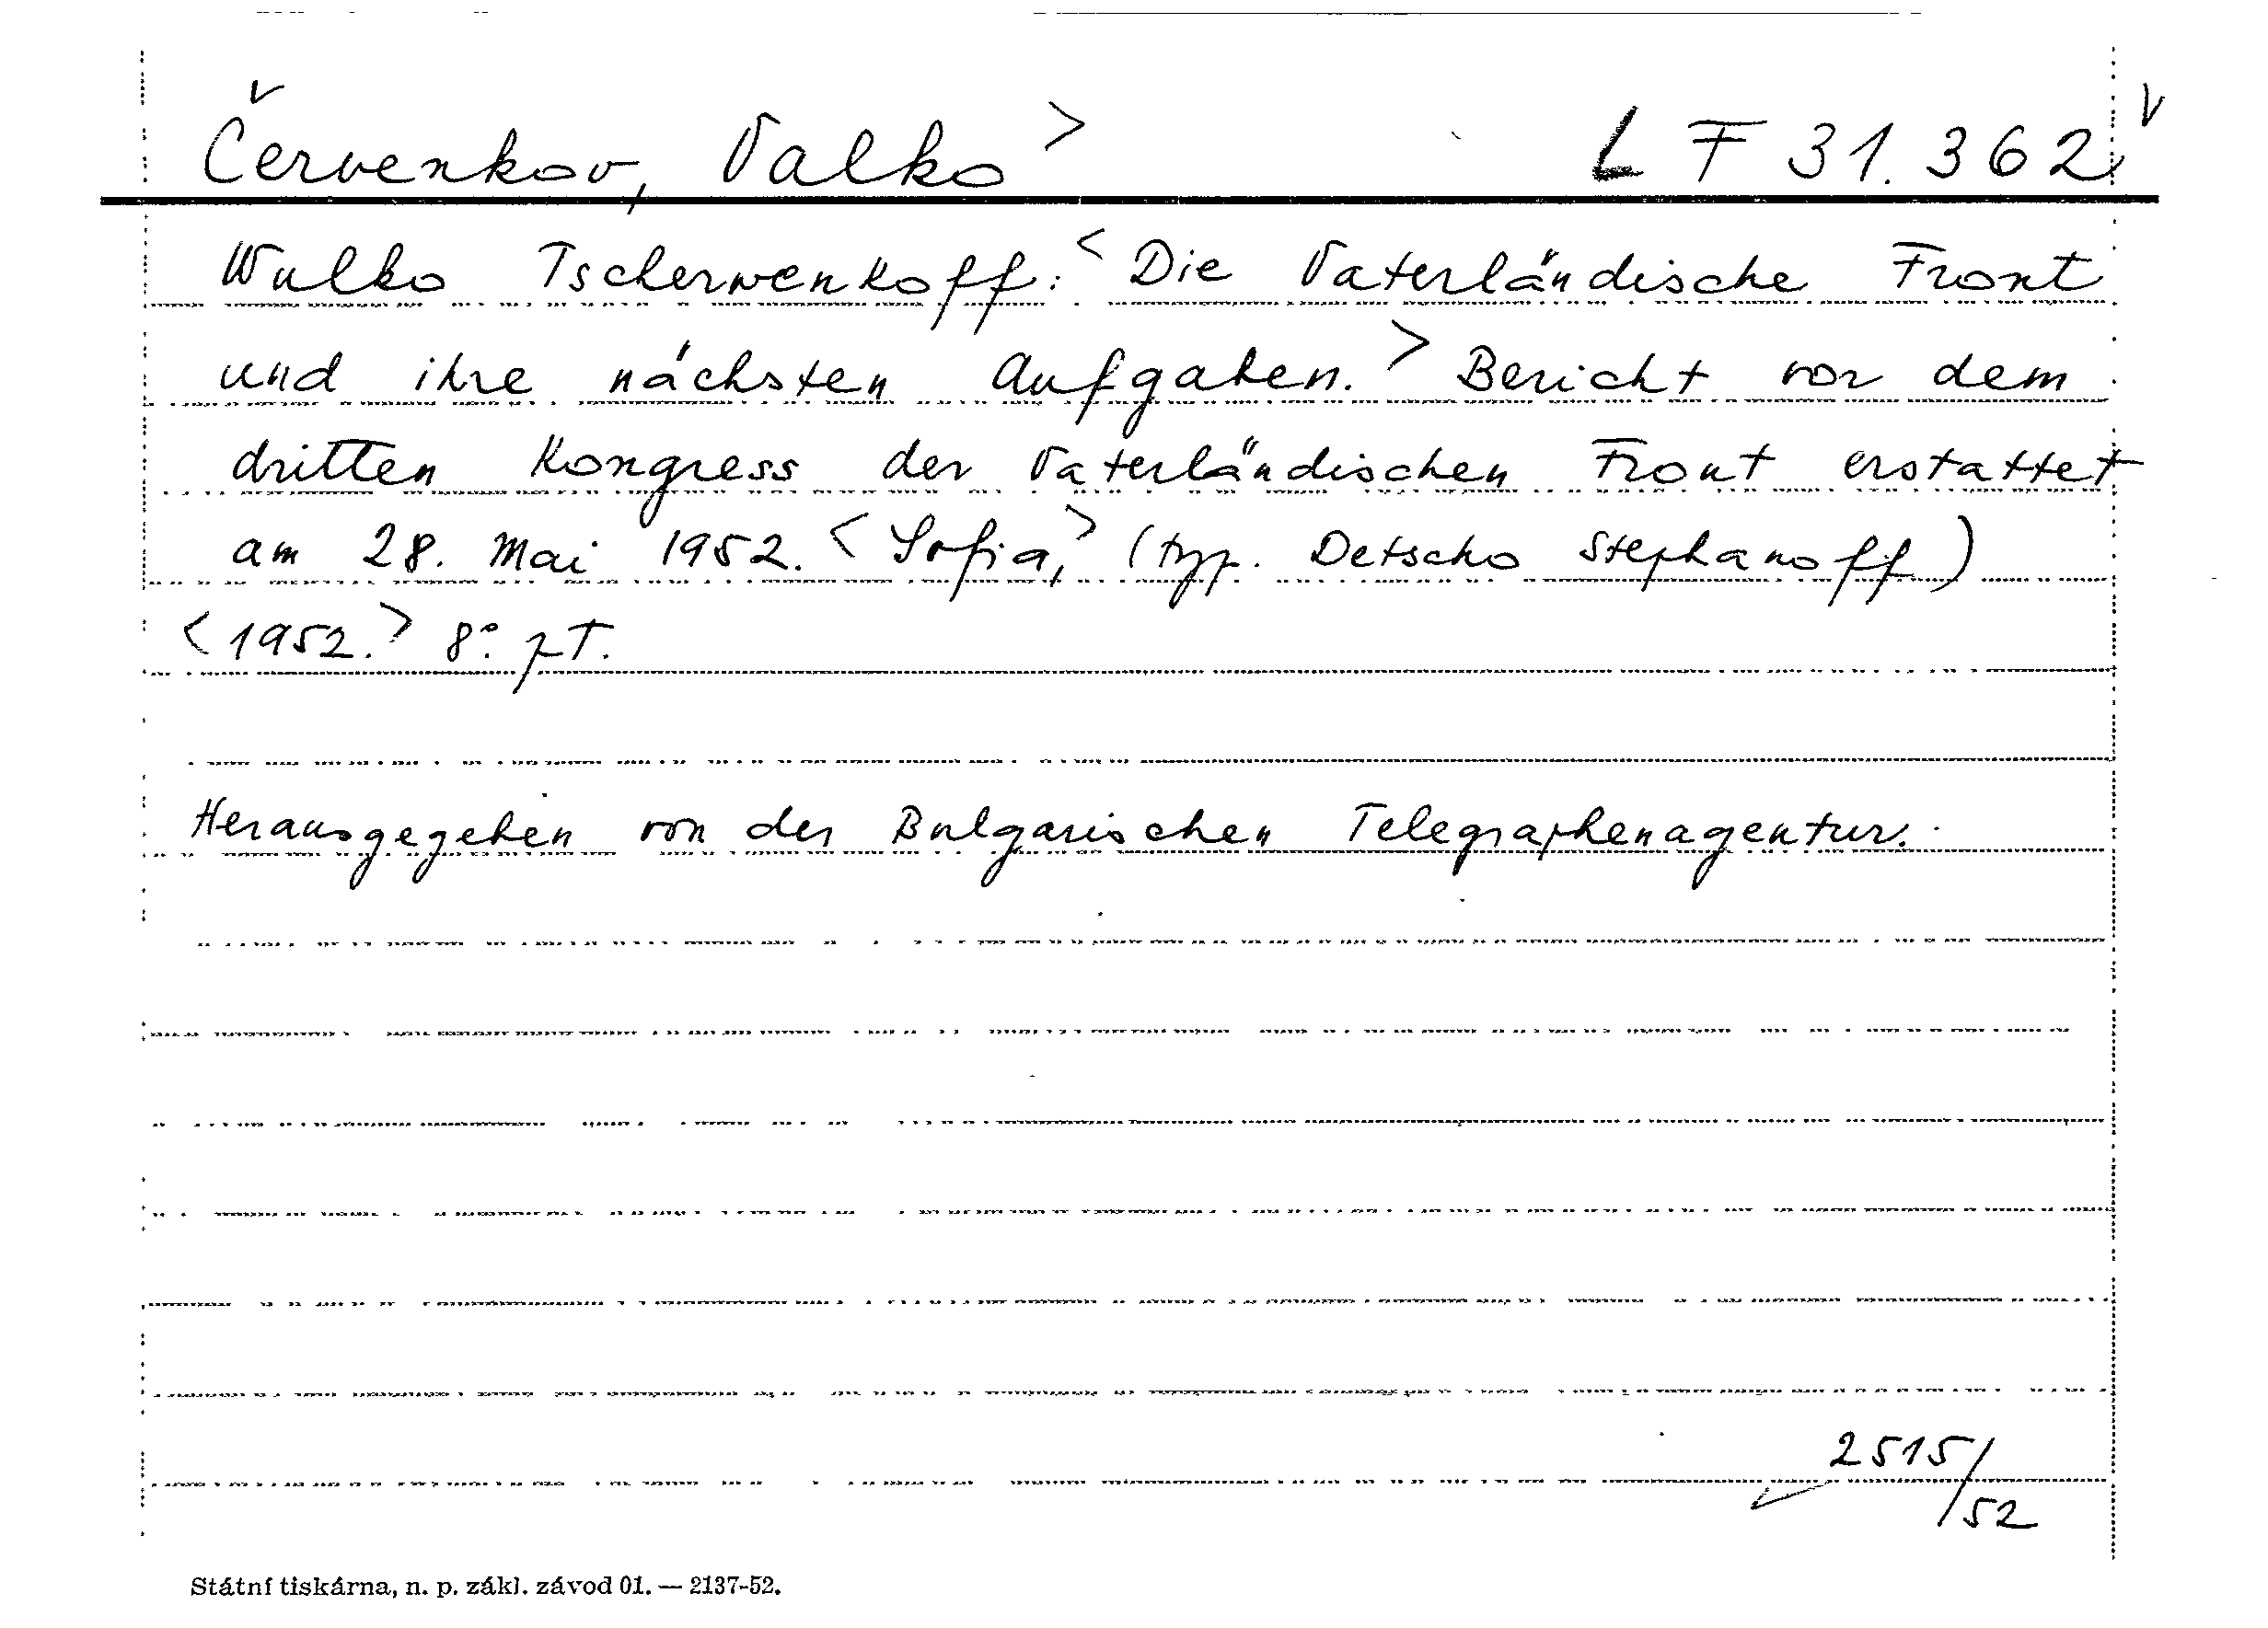 Červenkov, Valko > L F 31.362 v
Wulko Tscherwenkoff: < Die Vaterländische Front
und ihre nächsten Aufgaben. > Bericht vor dem
dritten Kongress der Vaterländischen Front erstattet
am 28. Mai 1952. < Sofia, > (typ. Detscho Stephanoff)
< 1952. > 8°. pT.
Herausgegeben von der Bulgarischen Telegraphenagentur.
2515/52
Státní tiskárna, n. p. zákl. závod 01. — 2137-52.